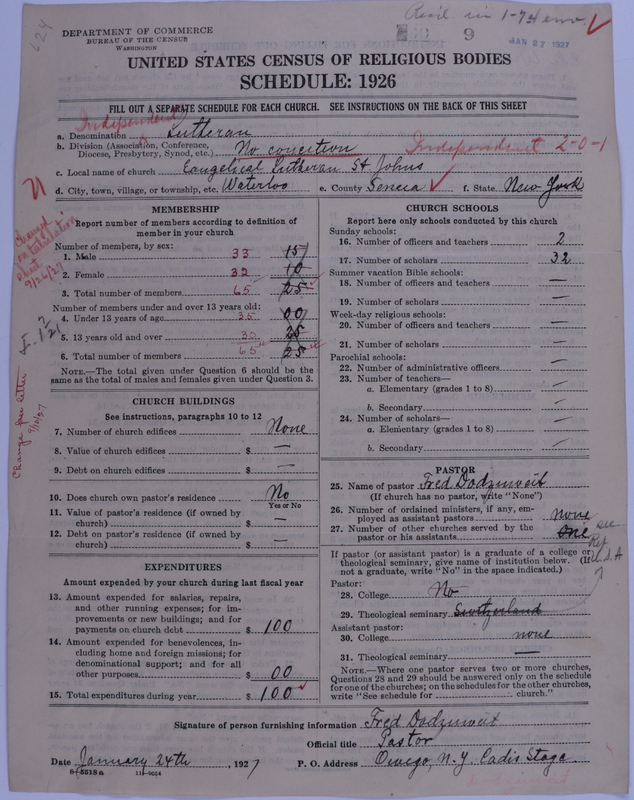 624
Recd in 1-74 env. ✓
DEPARTMENT OF COMMERCE
BUREAU OF THE CENSUS
WASHINGTON
9
JAN 27 1927
UNITED STATES CENSUS OF RELIGIOUS BODIES
SCHEDULE: 1926
FILL OUT A SEPARATE SCHEDULE FOR EACH CHURCH. SEE INSTRUCTIONS ON THE BACK OF THIS SHEET
Independent
a. Denomination Lutheran
b. Division (Association, Conference, Diocese, Presbytery, Synod, etc.) No conection Independent 2-0-1
c. Local name of church Evangelical Lutheran St Johns
d. City, town, village, or township, etc. Waterloo e. County Seneca ✓ f. State New York
MEMBERSHIP
Report number of members according to definition of
member in your church
Number of members, by sex:
1. Male 33 15
2. Female 32 10
3. Total number of members 65 25
Number of members under and over 13 years old:
4. Under 13 years of age 35 00
5. 13 years old and over 30 25
6. Total number of members 65 25
NOTE.—The total given under Question 6 should be
the same as the total of males and females given under Question 3.
Changed
on tabulation
sheet
9/26/27
Change per letter
9/10/27
CHURCH BUILDINGS
See instructions, paragraphs 10 to 12
7. Number of church edifices None
8. Value of church edifices $ —
9. Debt on church edifices $ —
10. Does church own pastor's residence No
Yes or No
11. Value of pastor's residence (if owned by
church) $ —
12. Debt on pastor's residence (if owned by
church) $ —
EXPENDITURES
Amount expended by your church during last fiscal year
13. Amount expended for salaries, repairs,
and other running expenses; for im-
provements or new buildings; and for
payments on church debt $ 100
14. Amount expended for benevolences, in-
cluding home and foreign missions; for
denominational support; and for all
other purposes $ 00
15. Total expenditures during year $ 100
CHURCH SCHOOLS
Report here only schools conducted by this church
Sunday schools:
16. Number of officers and teachers 2
17. Number of scholars 32
Summer vacation Bible schools:
18. Number of officers and teachers —
19. Number of scholars —
Week-day religious schools:
20. Number of officers and teachers —
21. Number of scholars —
Parochial schools:
22. Number of administrative officers —
23. Number of teachers—
a. Elementary (grades 1 to 8) —
b. Secondary —
24. Number of scholars—
a. Elementary (grades 1 to 8) —
b. Secondary —
PASTOR
25. Name of pastor Fred Dodzuweit
(If church has no pastor, write "None")
26. Number of ordained ministers, if any, em-
ployed as assistant pastors none
27. Number of other churches served by the
pastor or his assistants One see
If pastor (or assistant pastor) is a graduate of a college or
theological seminary, give name of institution below. (If
not a graduate, write "No" in the space indicated.)
Pastor:
28. College No
29. Theological seminary Switzerland
Assistant pastor:
30. College none
31. Theological seminary —
NOTE.—Where one pastor serves two or more churches,
Questions 28 and 29 should be answered only on the schedule
for one of the churches; on the schedules for the other churches,
write "See schedule for church."
Signature of person furnishing information Fred Dodzuweit
Official title Pastor
Date January 24th, 1927 P. O. Address Owego, N.Y. Cadis Stage
8-5518a 11-9024